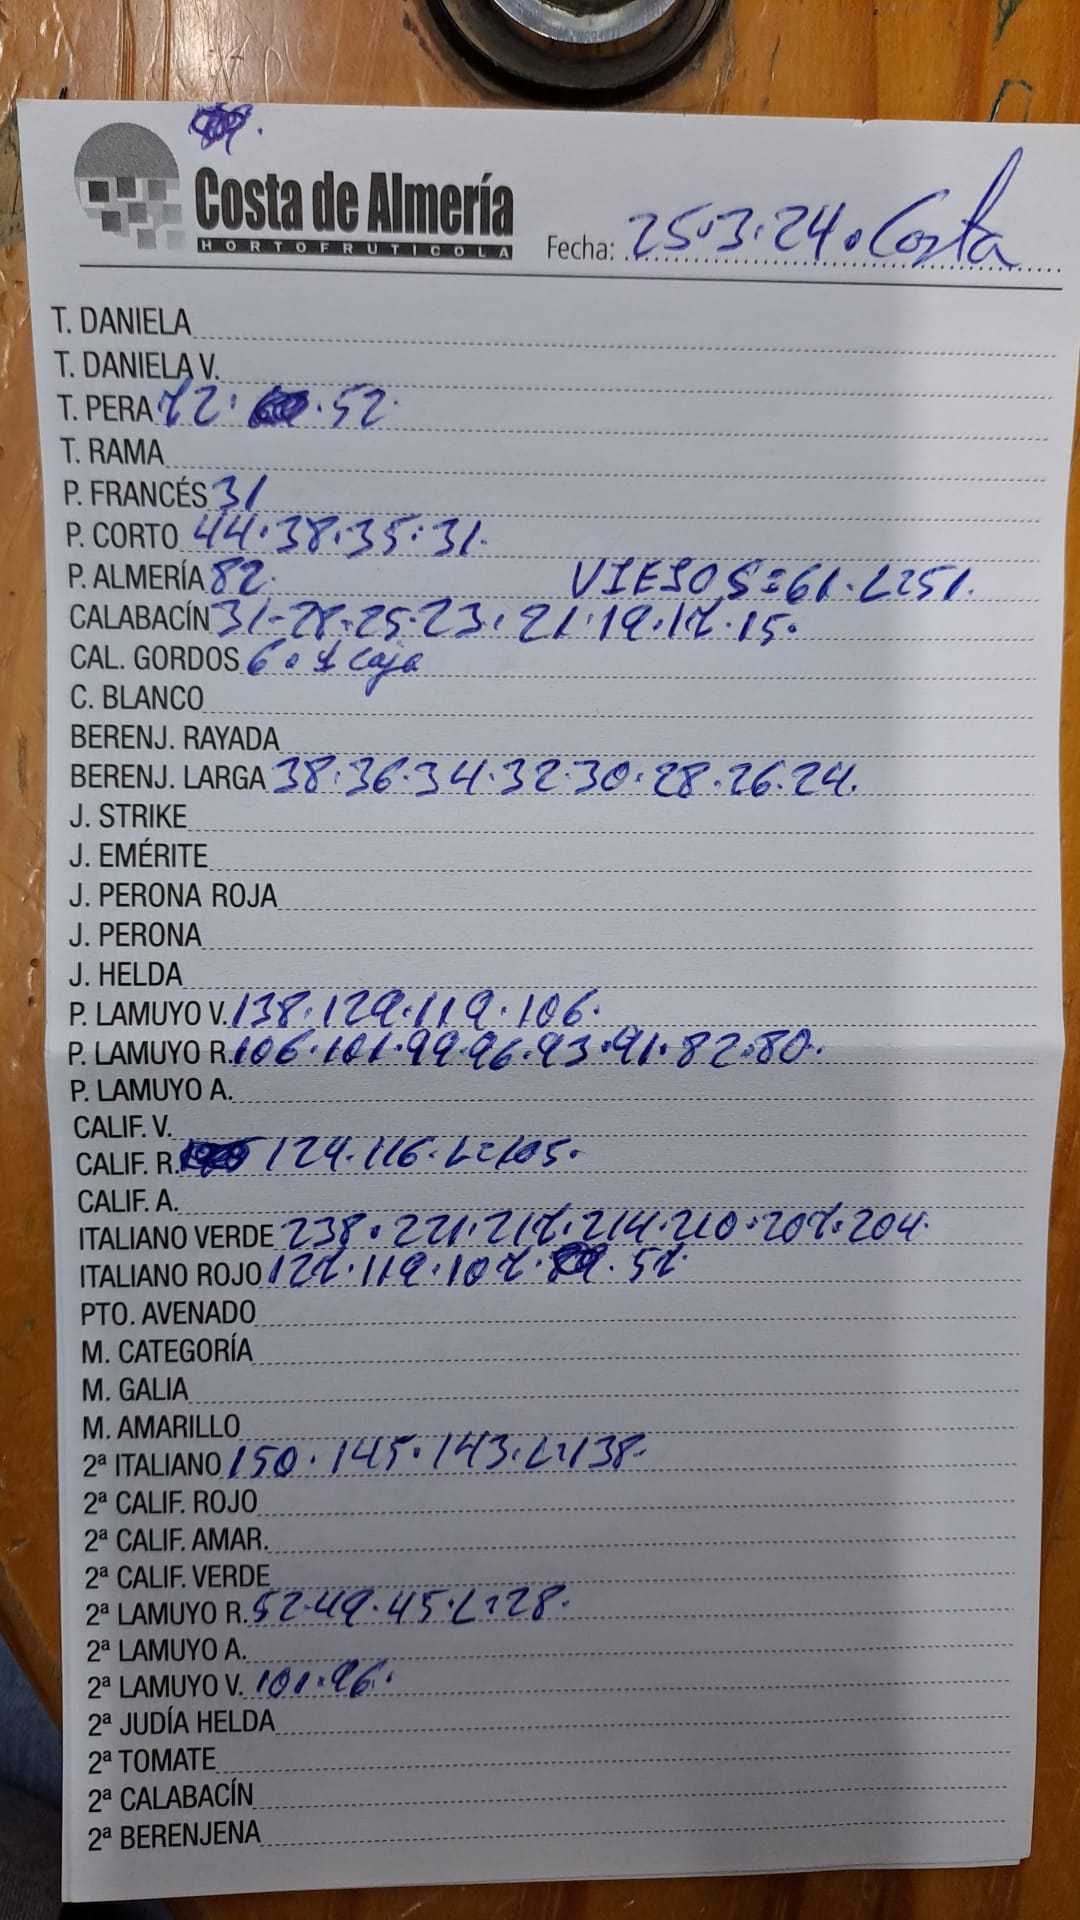 Costa de Almería
HORTOFRUTICOLA
Fecha: 25.3.24. Costa
T. DANIELA
T. DANIELA V.
T. PERA 72. . 52.
T. RAMA
P. FRANCÉS 31
P. CORTO 44.38.35.31.
P. ALMERÍA 82. VIEJOS=61.L=51.
CALABACÍN 31-28-25-23.21.19.17.15.
CAL. GORDOS 6.1 caja
C. BLANCO
BERENJ. RAYADA
BERENJ. LARGA 38.36.34.32.30.28.26.24.
J. STRIKE
J. EMÉRITE
J. PERONA ROJA
J. PERONA
J. HELDA
P. LAMUYO V. 138.129.119.106.
P. LAMUYO R. 106.101.99.96.93.91.82.80.
P. LAMUYO A.
CALIF. V.
CALIF. R. 124.116.L=105.
CALIF. A.
ITALIANO VERDE 238.221.217.214.210.207.204.
ITALIANO ROJO 127.119.107. . 57.
PTO. AVENADO
M. CATEGORÍA
M. GALIA
M. AMARILLO
2ª ITALIANO 150.145.143.L=138.
2ª CALIF. ROJO
2ª CALIF. AMAR.
2ª CALIF. VERDE
2ª LAMUYO R. 52.49.45.L=28.
2ª LAMUYO A.
2ª LAMUYO V. 101.96.
2ª JUDÍA HELDA
2ª TOMATE
2ª CALABACÍN
2ª BERENJENA